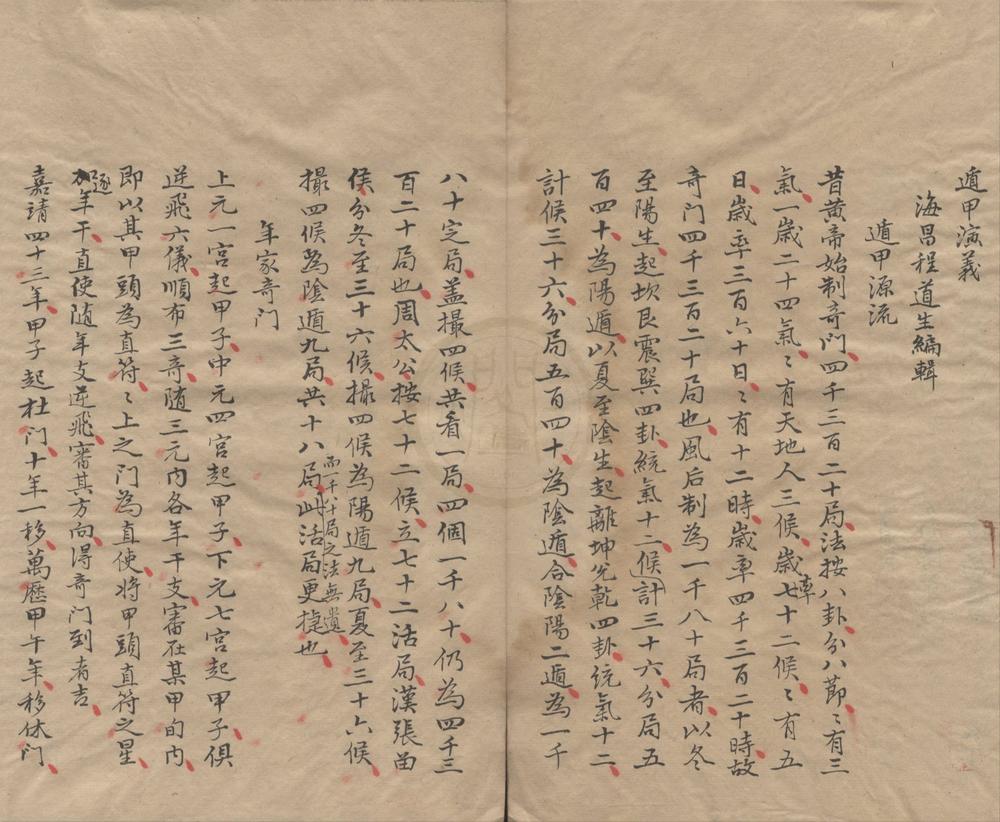 遁甲演義
海昌程道生編輯
遁甲源流
昔黃帝始制奇門四千三百二十局法按八卦分八節〻有三
氣一歲二十四氣〻有天地人三候歲率七十二候〻有五
日歲率三百六十日〻有十二時歲率四千三百二十時故
奇門四千三百二十局也風后制為一千八十局者以冬
至陽生起坎艮震巽四卦統氣十二候計三十六分局五
百四十為陽遁以夏至陰生起離坤兌乾四卦統氣十二
計候三十六分局五百四十為陰遁合陰陽二遁為一千
八十定局盖撮四候共看一局四個一千八十仍為四千三
百二十局也周太公按七十二候立七十二活局漢張留
侯分冬至三十六候撮四候為陽遁九局夏至三十六候
撮四候為陰遁九局共十八局而一千八十局之法無遺此活局更捷也
年家奇門
上元一宮起甲子中元四宮起甲子下元七宮起甲子俱
逆飛六儀順布三奇随三元內各年干支審在某甲旬內
即以其甲頭為直符〻上之門為直使将甲頭直符之星
加逐年干直使随年支逆飛審其方向得奇門到者吉
嘉靖四十三年甲子起杜門十年一移萬歷甲午年移休門